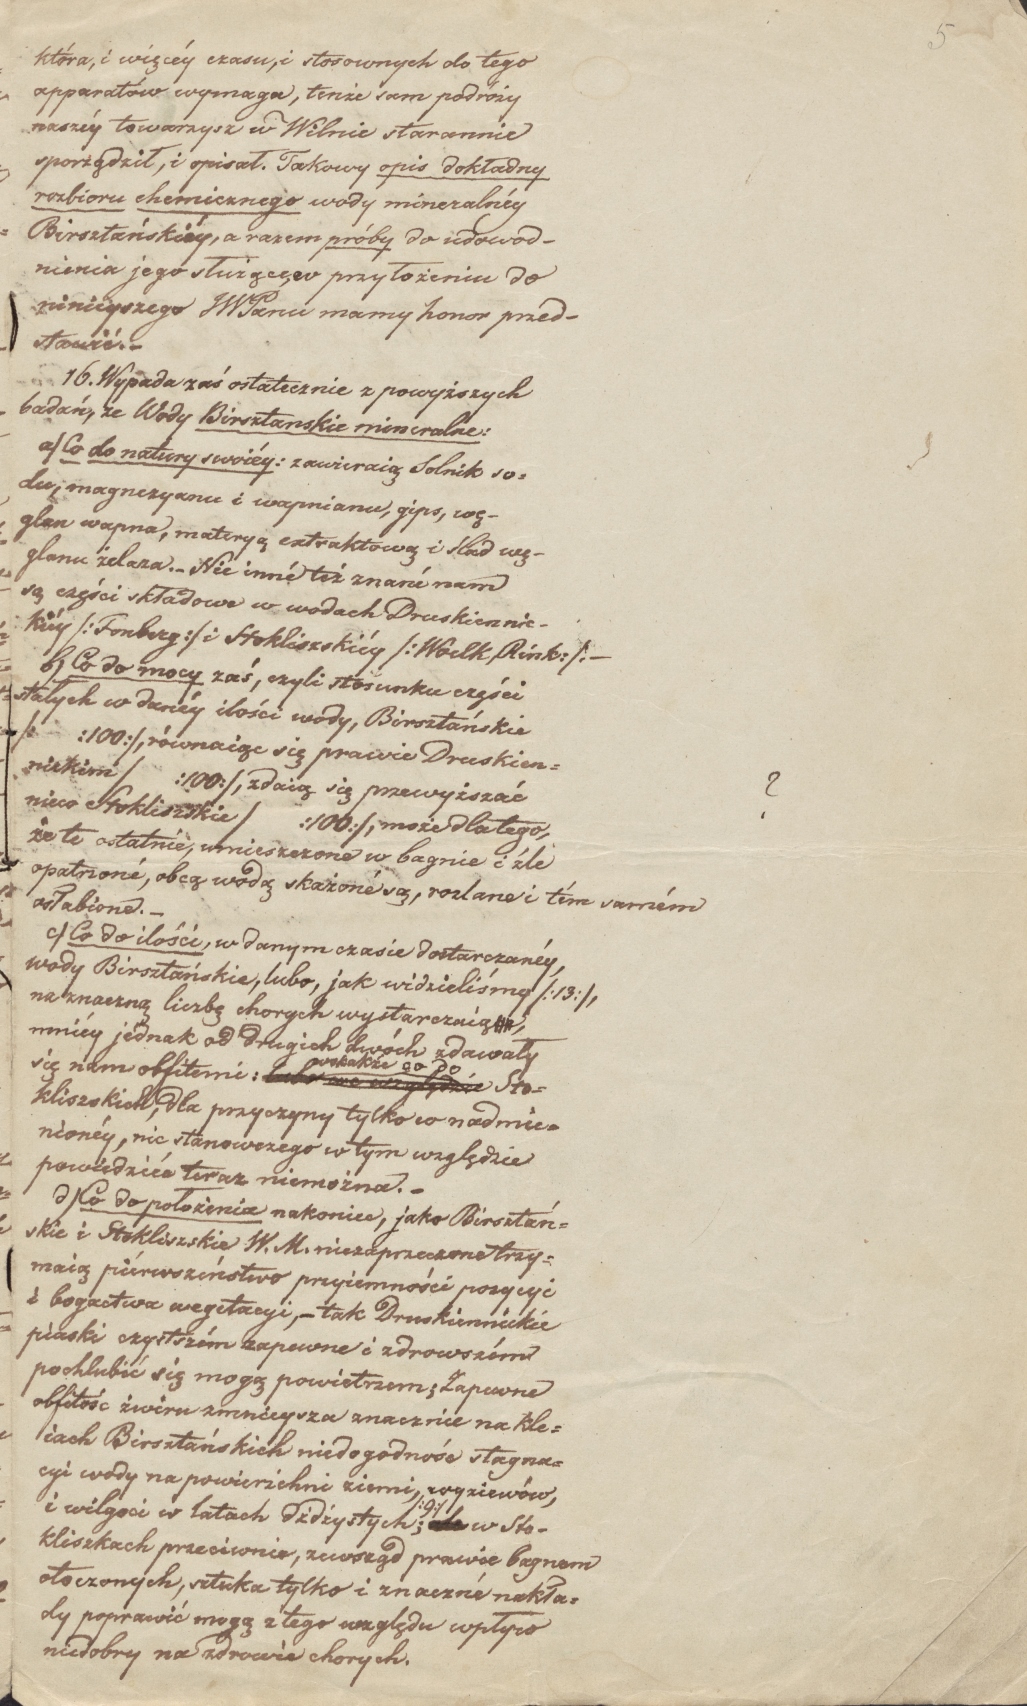 5
która, i więcéy czasu, i stosownych do tego
apparatów wymaga, tenże sam podróży
naszéy towarzysz w Wilnie starannie
sporządził, i opisał. Takowy opis dokładny
rozbioru chemicznego wody mineralnéy
Birsztańskiéy, a razem próby do udowod-
nienia jego służące, w przyłożeniu do
ninieyszego JWPanu mamy honor przed-
stawić.-
16. Wypada zaś ostatecznie z powyższych
badań, że Wody Birsztanskie mineralne:
a/ Co do natury swoiéy: zawieraią Solnik so-
du, magnezyanu i wapnianu, gips, wę-
glan wapna, materyą extraktową i ślad wę-
glanu żelaza.- Nie inné też znané nam
są części składowe w wodach Druskiennic-
kiéy /:Fonberg:/ i Stokliszskiéy /:Woelk, Rink:/.-
b/ Co do mocy zaś, czyli stosunku części
stałych w danéy ilości wody, Birsztańskie
/: :100:/, równaiąc się prawie Druskien-
nickim / :100:/, zdaią się przewyższać
nieco Stokliszskie / :100:/, może dla tego,
że te ostatnié, umieszczone w bagnie i źle
opatrzoné, obcą wodą skażoné są, rozlane i tém samém
osłabione.-
?
c/ Co do ilości, w danym czasie dostarczanéy,
wody Birsztańskie, lubo, jak widzieliśmy /:13:/,
na znaczną liczbę chorych wystarczaią,
mniéy jednak od drugich dwóch zdawały
się nam obfitemi: wszakże co do Sto-
kliszskich, dla przyczyny tylko co nadmie-
nionéy, nic stanowczego w tym względzie
powiedziéć teraz niemożna.-
d/ Co do położenia nakoniec, jako Birsztań-
skie i Stokliszskie W. M. niezaprzeczone trzy-
maią piérwszeństwo przyiemności pozycyi
i bogactwa wegetacyi,- tak Druskiennickié
piaski czystszém zapewne i zdrowszém
pochlubić się mogą powietrzem; Zapewne
obfitość żwiru zmnieysza znacznie na kle-
iach Birsztańskich niedogodność stagna-
cyi wody na powierzchni ziemi, wyziewów,
i wilgoci w latach dżdżystych /:9:/; w Sto-
kliszkach przeciwnie, zewsząd prawie bagnem
otoczonych, sztuka tylko i znaczné nakła-
dy poprawić mogą z tego względu wpływ
niedobry na zdrowie chorych.